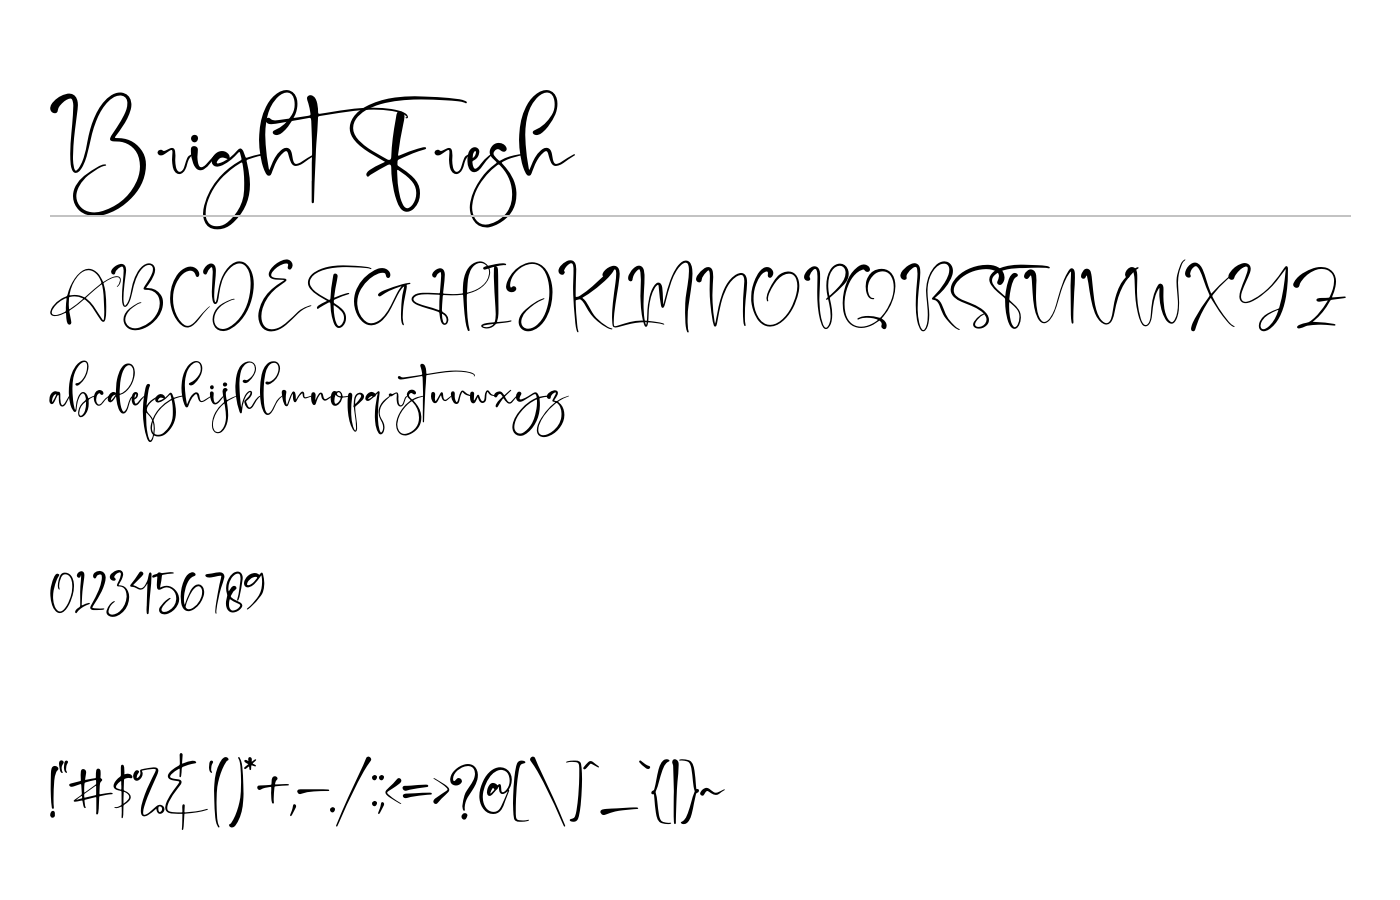 Bright Fresh
ABCDEFGHIJKLMNOPQRSTUVWXYZ
abcdefghijklmnopqrstuvwxyz
0123456789
!"#$%&'()*+,-./:;<=>?@[\]^_`{|}~